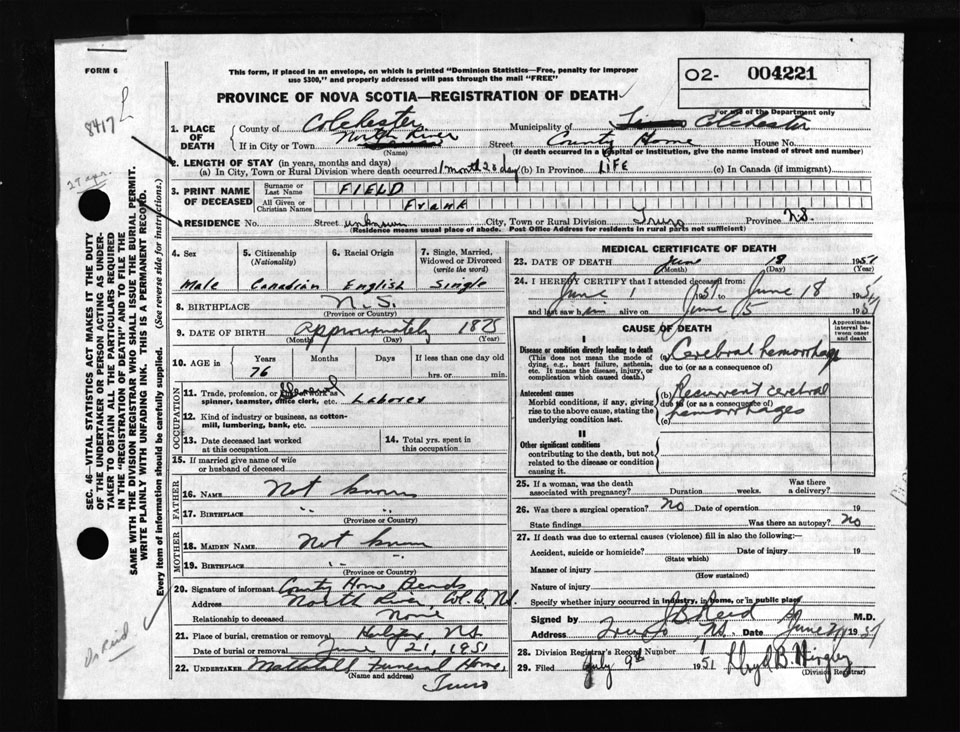 FORM 6
This form, if placed in an envelope, on which is printed "Dominion Statistics—Free, penalty for improper
use $300," and properly addressed will pass through the mail "FREE"
O2- 004221
For use of the Department only
PROVINCE OF NOVA SCOTIA—REGISTRATION OF DEATH
8417
27 apr.
1. PLACE OF DEATH
County of Colchester
Municipality of Colchester
If in City or Town North River
(Name)
Street County Home House No.
(If death occurred in a hospital or institution, give the name instead of street and number)
2. LENGTH OF STAY (in years, months and days)
(a) In City, Town or Rural Division where death occurred 1 month 23 day (b) In Province Life (c) In Canada (if immigrant)
3. PRINT NAME OF DECEASED
Surname or Last Name FIELD
All Given or Christian Names Frank
RESIDENCE No. Street unknown City, Town or Rural Division Truro Province N.S.
(Residence means usual place of abode. Post Office Address for residents in rural parts not sufficient)
4. Sex
Male
5. Citizenship
(Nationality)
Canadian
6. Racial Origin
English
7. Single, Married, Widowed or Divorced
(write the word)
Single
8. BIRTHPLACE N.S.
(Province or Country)
9. DATE OF BIRTH Approximately 1875
(Month) (Day) (Year)
10. AGE in Years Months Days If less than one day old
76 hrs. or min.
OCCUPATION
11. Trade, profession, or kind of work as
spinner, teamster, office clerk, etc. Laborer
12. Kind of industry or business, as cotton-
mill, lumbering, bank, etc.
13. Date deceased last worked
at this occupation
14. Total yrs. spent in
this occupation
15. If married give name of wife
or husband of deceased
FATHER
16. NAME Not known
17. BIRTHPLACE " "
(Province or Country)
MOTHER
18. MAIDEN NAME Not known
19. BIRTHPLACE " "
(Province or Country)
20. Signature of informant County Home Records
Address North River, Col. Co. N.S.
Relationship to deceased None
21. Place of burial, cremation or removal Halifax, N.S.
Date of burial or removal June 21, 1951
22. UNDERTAKER Mattatall Funeral Home,
(Name and address)
Truro
MEDICAL CERTIFICATE OF DEATH
23. DATE OF DEATH June 18 1951
(Month) (Day) (Year)
24. I HEREBY CERTIFY that I attended deceased from:
June 1 1951 to June 18 1951
and last saw him alive on June 15 1951
CAUSE OF DEATH
Approximate interval between onset and death
I
Disease or condition directly leading to death
(This does not mean the mode of
dying, e.g., heart failure, asthenia,
etc. It means the disease, injury, or
complication which caused death.)
(a) Cerebral hemorrhage
due to (or as a consequence of)
Antecedent causes
Morbid conditions, if any, giving
rise to the above cause, stating the
underlying condition last.
(b) Recurrent cerebral
due to (or as a consequence of)
hemorrhages
(c)
II
Other significant conditions
contributing to the death, but not
related to the disease or condition
causing it.
25. If a woman, was the death
associated with pregnancy? Duration weeks. Was there a delivery?
26. Was there a surgical operation? No Date of operation 19
State findings Was there an autopsy? No
27. If death was due to external causes (violence) fill in also the following:—
Accident, suicide or homicide? Date of injury 19
(State which)
Manner of injury
(How sustained)
Nature of injury
Specify whether injury occurred in industry, in home, or in public place
Signed by J B Reid M.D.
Address Truro N.S. Date June 1951
28. Division Registrar's Record Number 1
29. Filed July 9th 1951
(Division Registrar)
SEC. 46—VITAL STATISTICS ACT MAKES IT THE DUTY
OF THE UNDERTAKER OR PERSON ACTING AS UNDER-
TAKER TO OBTAIN ALL THE PARTICULARS REQUIRED
IN THE "REGISTRATION OF DEATH" AND TO FILE THE
SAME WITH THE DIVISION REGISTRAR WHO SHALL ISSUE THE BURIAL PERMIT.
WRITE PLAINLY WITH UNFADING INK. THIS IS A PERMANENT RECORD.
Every item of information should be carefully supplied. (See reverse side for instructions.)
Dr Reid